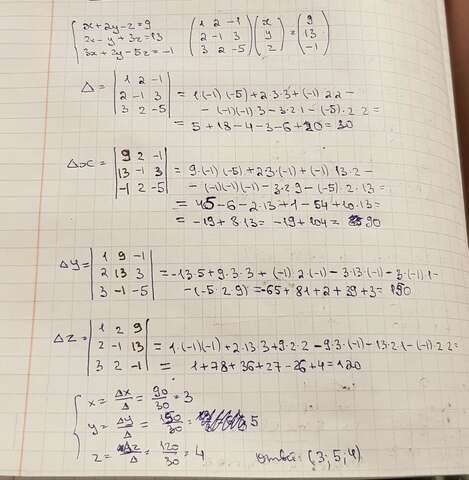 x+2y-z=9
2x-y+3z=13
3x+2y-5z=-1
( 1 2 -1 ) ( x ) ( 9 )
( 2 -1 3 ) ( y ) = ( 13 )
( 3 2 -5 ) ( z ) ( -1 )
| 1 2 -1 |
Δ = | 2 -1 3 | = 1·(-1)·(-5)+2·3·3+(-1)·2·2-
| 3 2 -5 | -(-1)(-1)3-3·2·1-(-5)·2·2=
= 5+18-4-3-6+20=30
| 9 2 -1 |
Δx = | 13 -1 3 | = 9·(-1)(-5)+2·3·(-1)+(-1)·13·2-
| -1 2 -5 | -(-1)(-1)(-1)-3·2·9-(-5)·2·13=
= 45-6-2·13+1-54+10·13=
= -19+8·13=-19+104= 90
| 1 9 -1 |
Δy = | 2 13 3 | = -13·5+9·3·3+(-1)·2(-1)-3·13·(-1)-3·(-1)·1-
| 3 -1 -5 | -(-5·2·9)=-65+81+2+39+3=150
| 1 2 9 |
Δz = | 2 -1 13 | = 1·(-1)(-1)+2·13·3+9·2·2-9·3·(-1)-13·2·1-(-1)·2·2=
| 3 2 -1 | = 1+78+36+27-26+4=120
x = Δx/Δ = 90/30 = 3
y = Δy/Δ = 150/30 = 5
z = Δz/Δ = 120/30 = 4
ответ: (3;5;4)